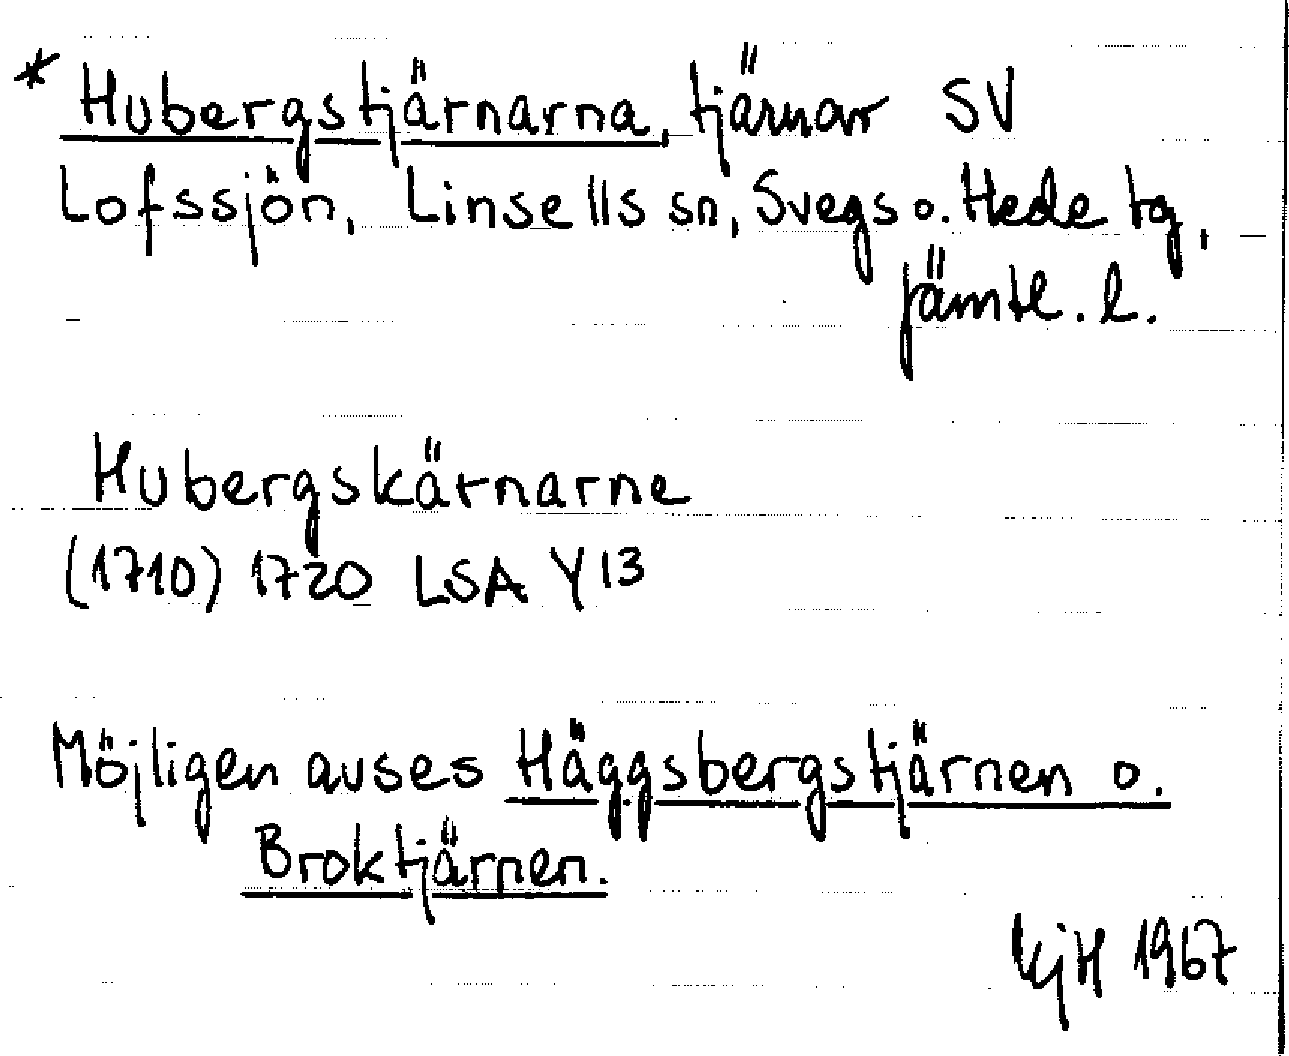 * Hubergstjärnarna, tjärnar SV
Lofssjön, Linsells sn, Svegs o. Hede tg,
Jämtl. l.
Hubergskärnarne
(1710) 1720 LSA Y13
Möjligen avses Häggsbergstjärnen o.
Broktjärnen.
KjH 1967